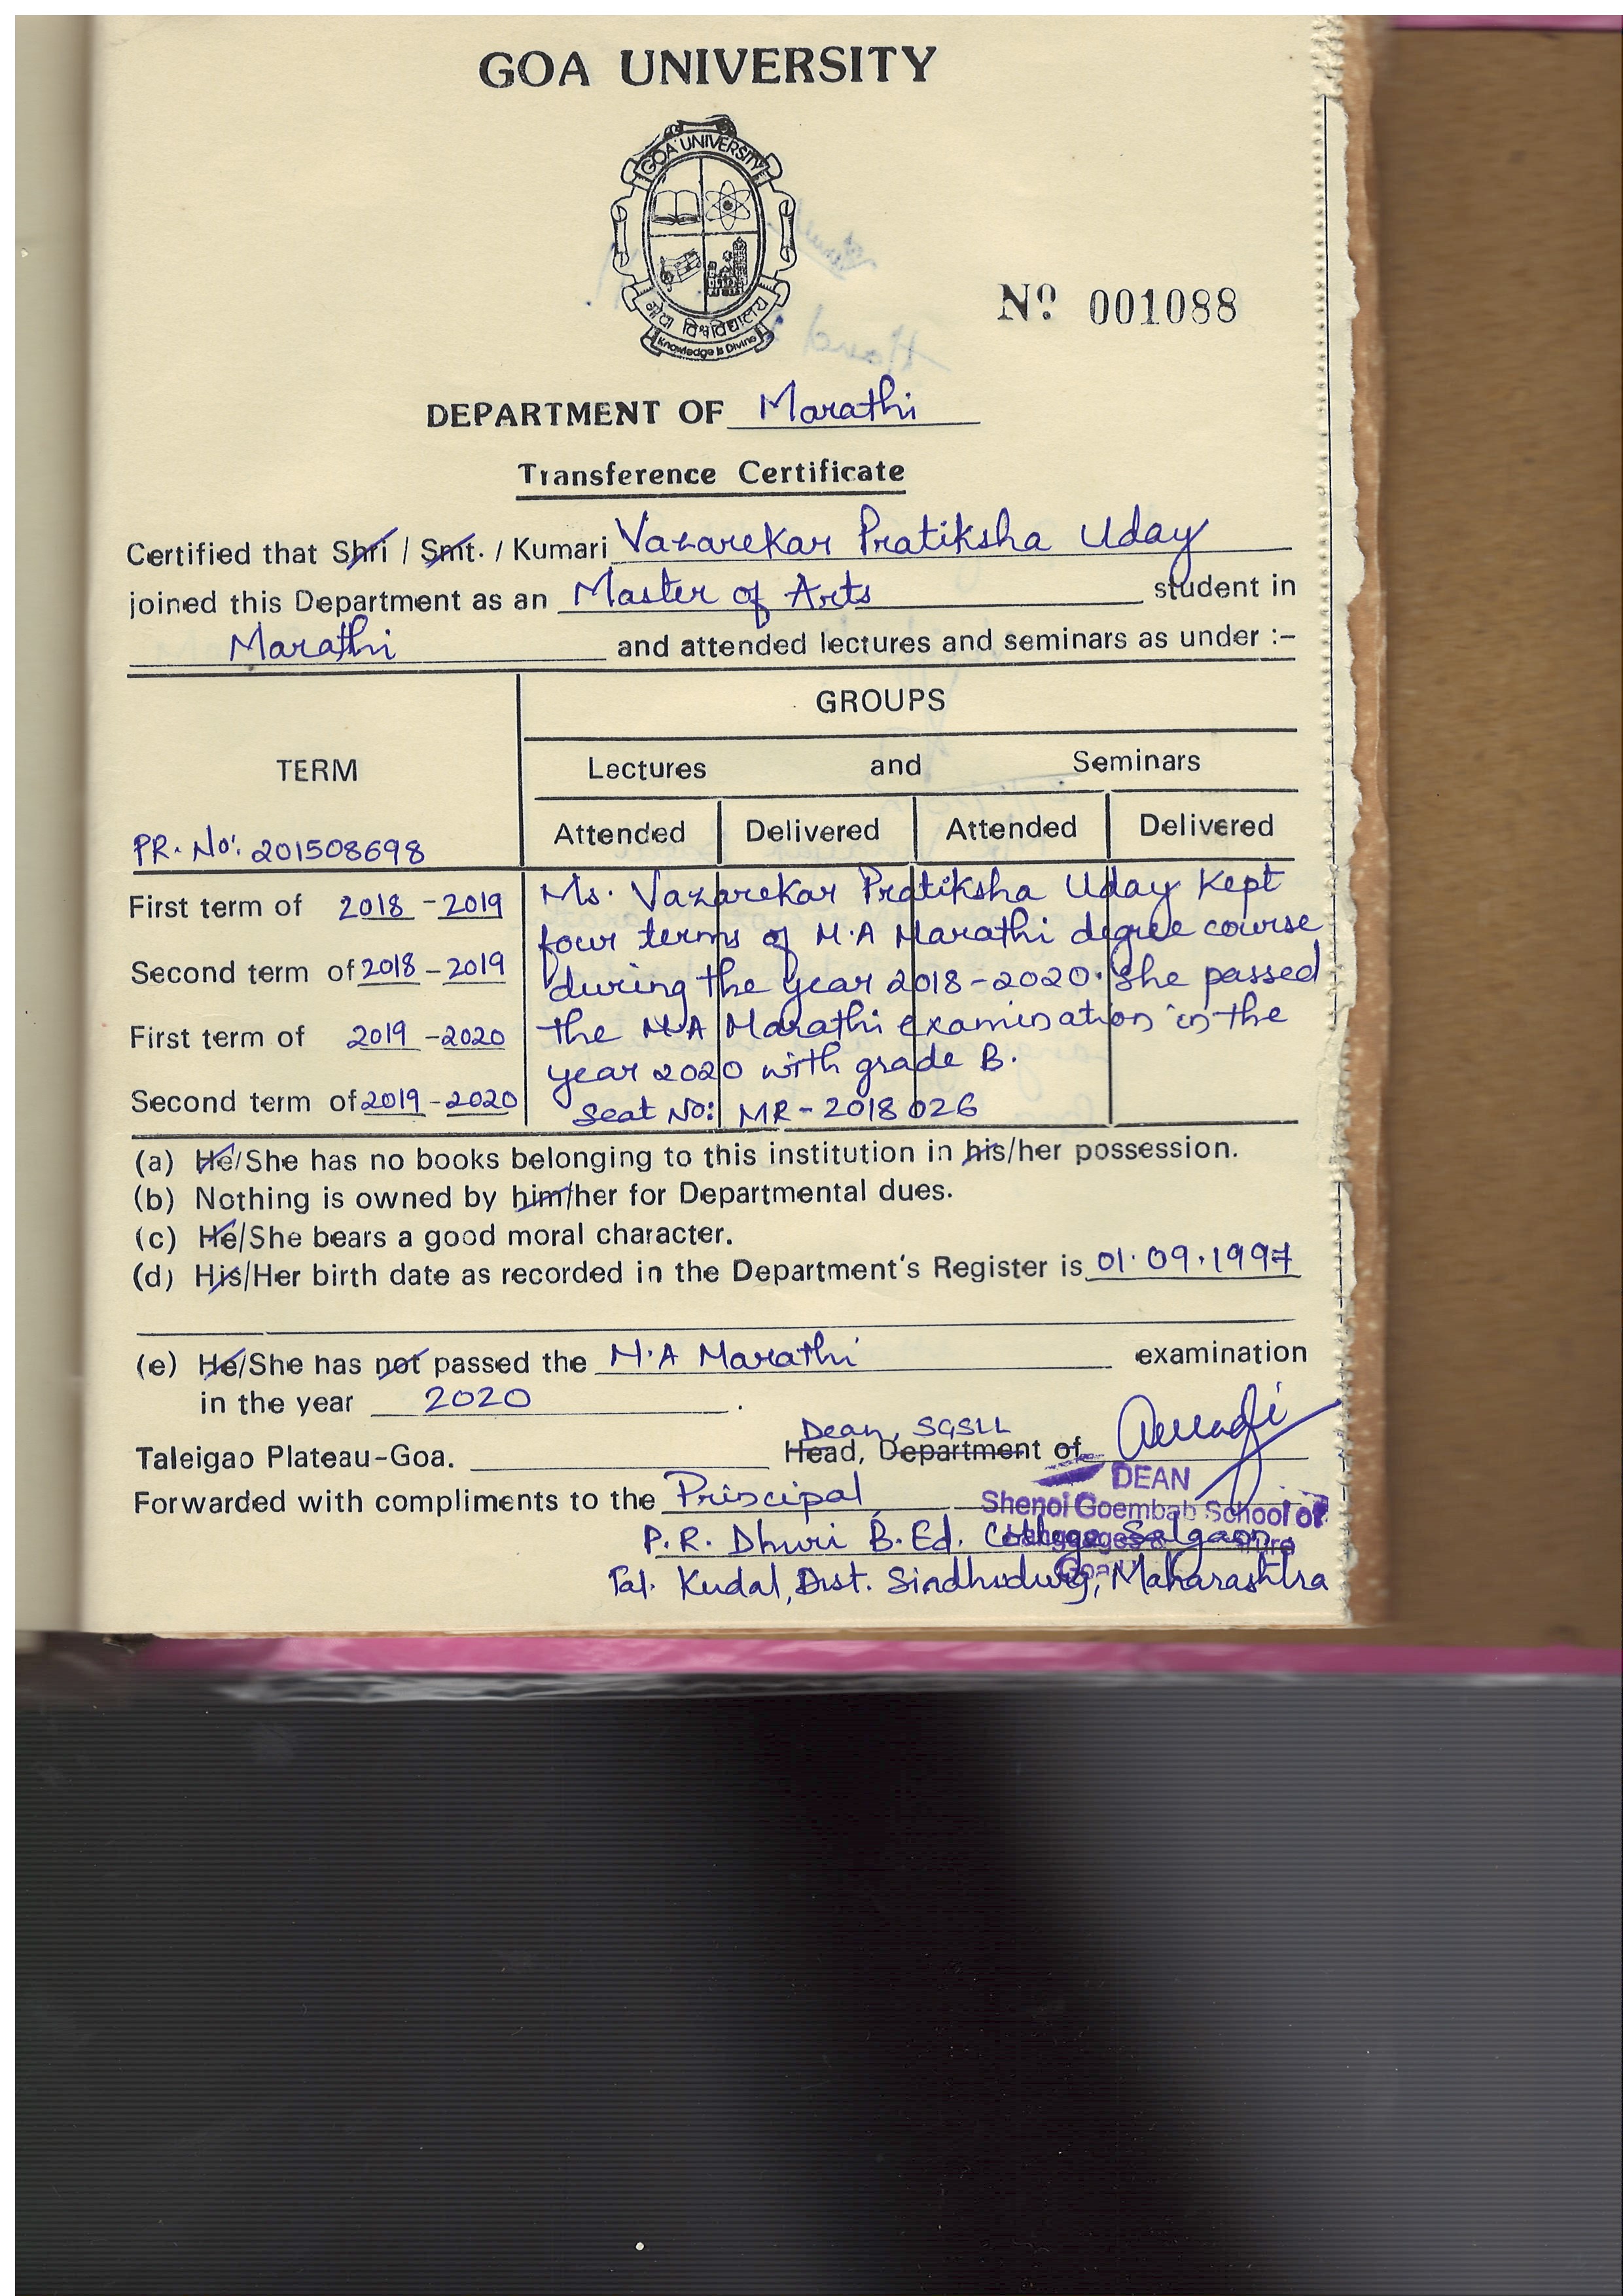 GOA UNIVERSITY
GOA UNIVERSITY
गोंय विश्वविद्यालय
Knowledge is Divine
Nº 001088
DEPARTMENT OF Marathi
Transference Certificate
Certified that Shri / Smt. / Kumari Vazarekar Pratiksha Uday
joined this Department as an Master of Arts student in
Marathi and attended lectures and seminars as under :-
GROUPS
TERM Lectures and Seminars
PR. No: 201508698 Attended Delivered Attended Delivered
First term of 2018 - 2019 Ms. Vazarekar Pratiksha Uday Kept
four terms of M.A Marathi degree course
Second term of 2018 - 2019 during the year 2018-2020. She passed
First term of 2019 - 2020 the M.A Marathi examination in the
year 2020 with grade B.
Second term of 2019 - 2020 Seat No: MR - 2018026
(a) He/She has no books belonging to this institution in his/her possession.
(b) Nothing is owned by him/her for Departmental dues.
(c) He/She bears a good moral character.
(d) His/Her birth date as recorded in the Department's Register is 01.09.1997
(e) He/She has not passed the M.A Marathi examination
in the year 2020 .
Dean, SGSLL
Taleigao Plateau-Goa. Head, Department of
DEAN
Forwarded with compliments to the Principal
Shenoi Goembab School of
P.R. Dhuri B.Ed. College Salgaon,
Tal. Kudal, Dist. Sindhudurg, Maharashtra